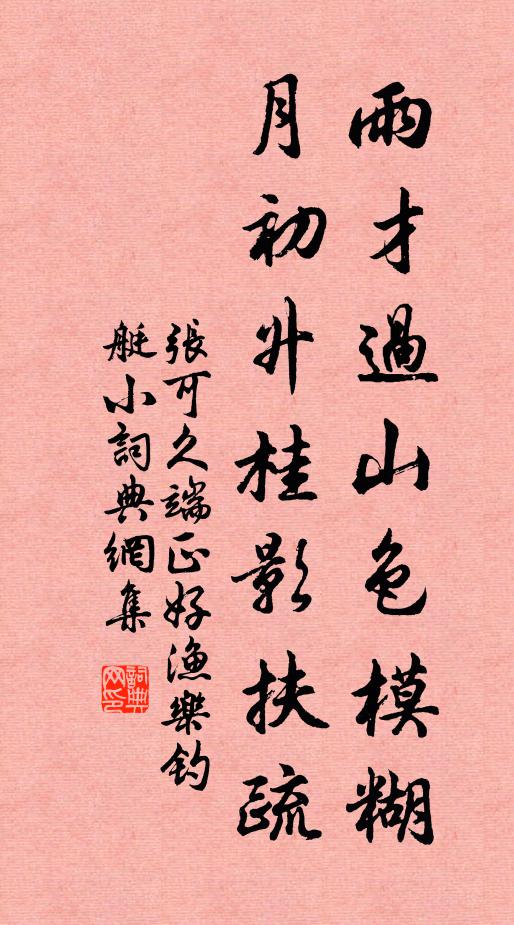 雨才過山色模糊
月初升桂影扶疏
張可久端正好漁樂釣
艇小詞典網集
詞典
网印